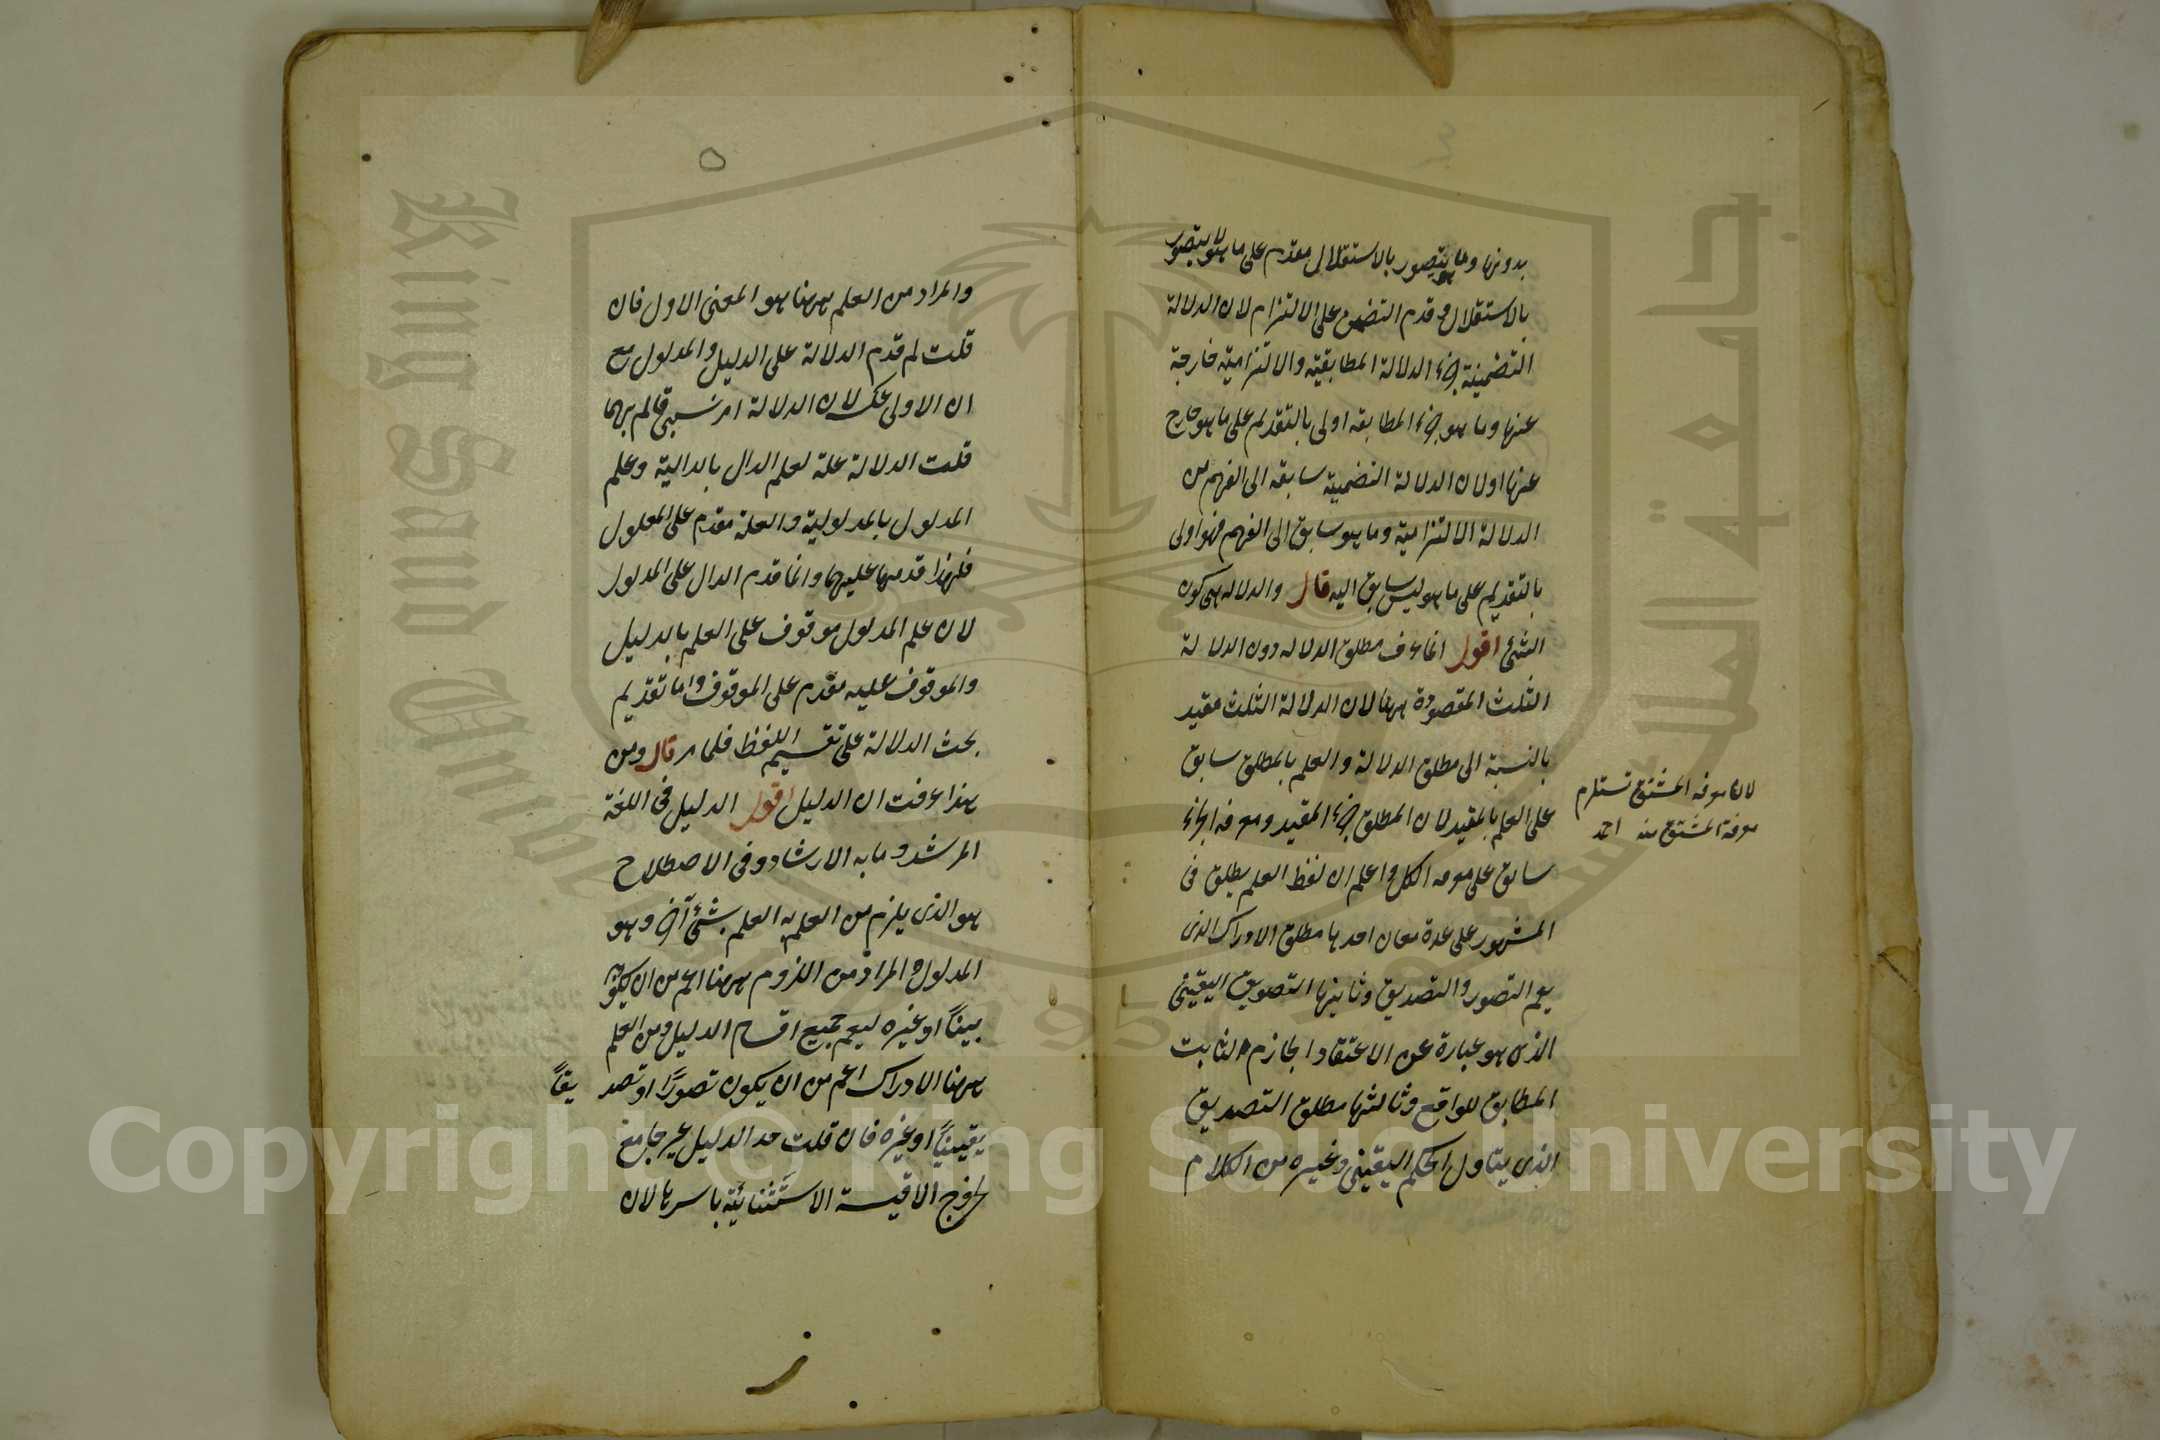 بدونها وما هو يتصور بالاستقلال مقدم على ما هو لا يتصور
بالاستقلال وقدم التضمن على الالتزام لان الدلالة
التضمنية جزء الدلالة المطابقية والالتزامية خارجة
عنها وما هو جزء المطابقه اولى بالتقديم على ما هو خارج
عنها او لان الدلالة التضمنية سابقه الى الفهم من
الدلالة الالتزامية وما هو سابق الى الفهم فهو اولى
بالتقديم على ما هو ليس سابق اليه قال والدلاله هى كون
الشئ اقول انما عرف مطلق الدلاله دون الدلالة
الثلث المقصودة ههنا لان الدلالة الثلث مقيد
بالنسبة الى مطلق الدلالة والعلم بالمطلق سابق
على العلم بالمقيد لان المطلق جزء المقيد ومعرفه الجزء
سابق على معرفه الكل واعلم ان لفظ العلم يطلق فى
المشهور على عدة معان احدها مطلق الادراك الذى
يعم التصور والتصديق وثانيها التصديق اليقينى
الذى هو عبارة عن الاعتقاد الجازم الثابت
المطابق للواقع وثالثها مطلق التصديق
الذى يتناول الحكم اليقينى وغيره من الكلام
لان معرفه المشتق تستلزم
معرفة المشتق منه احمد
والمراد من العلم ههنا هو المعنى الاول فان
قلت لم قدم الدلالة على الدليل والمدلول مع
ان الاولى عكسه لان الدلالة امر نسبى قائم بهما
قلت الدلالة علة لعلم الدال بالدالية وعلم
المدلول بالمدلولية والعلة مقدم على المعلول
فلهذا قدمها عليهما وانما قدم الدال على المدلول
لان علم المدلول موقوف على العلم بالدليل
والموقوف عليه مقدم على الموقوف واما تقديم
بحث الدلالة على تقسيم اللفظ فلما مر قال ومن
هذا عرفت ان الدليل اقول الدليل فى اللغة
المرشد وما به الارشاد وفى الاصطلاح
هو الذى يلزم من العلم به العلم بشئ آخر وهو
المدلول والمراد من اللزوم ههنا اعم من ان يكون
بيناً او غيره ليعم جميع اقسام الدليل ومن العلم
ههنا الادراك اعم من ان يكون تصورًا او تصديقاً
يقينياً او غيره فان قلت حد الدليل غير جامع
لخروج الاقيسة الاستثنائية باسرها لان
King Saud University
جامعة الملك سعود
1957
Copyright © King Saud University